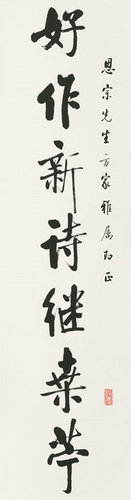 好作新诗继桑苧
恩宗先生方家雅属即正